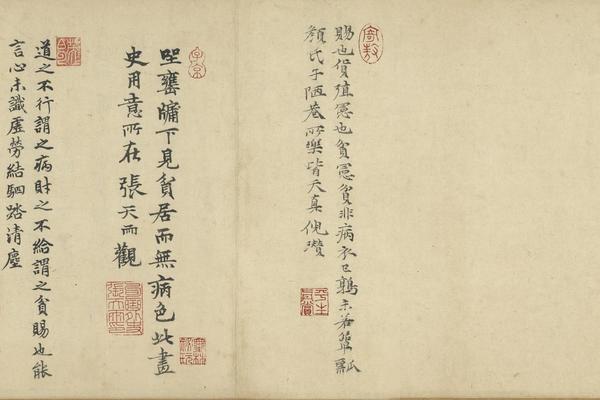 賜也貨殖憲也貧憲貧非病衣已鶉未若簞瓢
顏氏子陋巷所樂皆天真倪瓚
平生
真賞
坐甕牖下見貧居而無病色此畫
史用意所在張天雨觀
道之不行謂之病財之不給謂之貧賜也能
言心未識虛勞結駟踏清塵